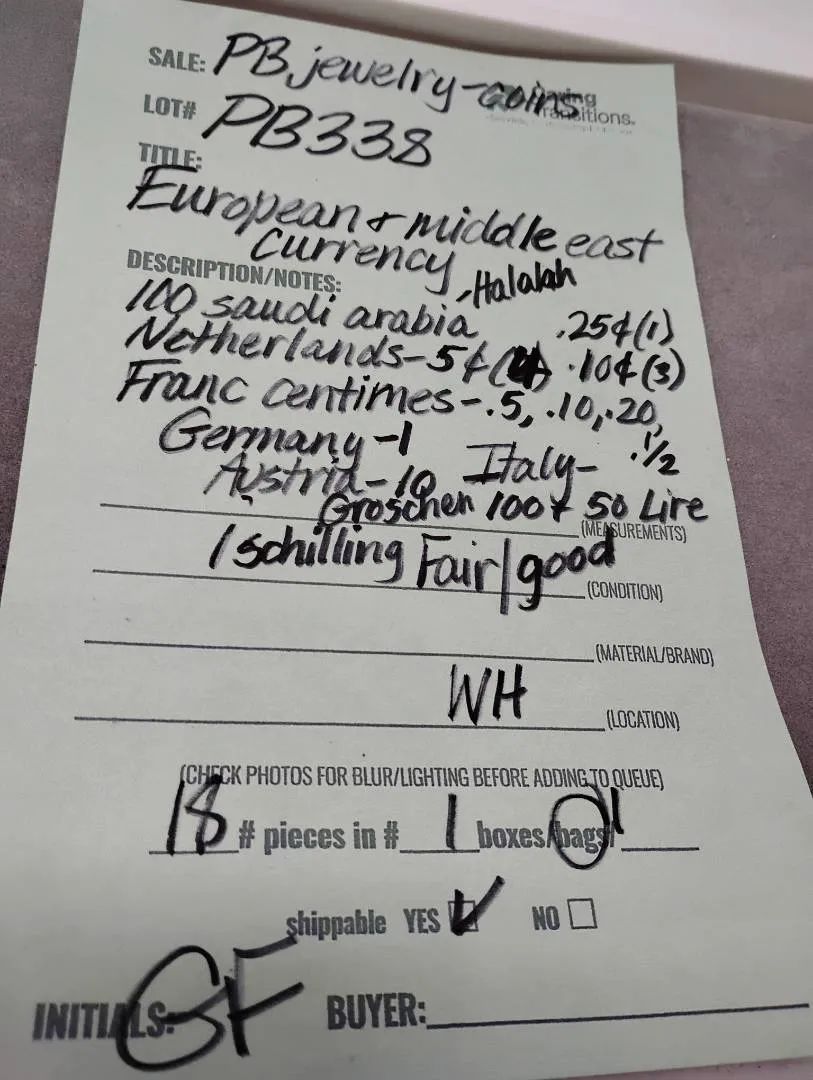 SALE: PB jewelry-coins
Caring Transitions.
LOT# PB338
TITLE:
European + middle east
currency
DESCRIPTION/NOTES: -Halalah
100 saudi arabia .25¢(1)
Netherlands-5¢(4) .10¢(3)
Franc centimes-.5, .10,.20,
Germany-1 Italy- .1/2
Austria-10
Groschen 100+ 50 Lire
(MEASUREMENTS)
1 schilling Fair/good
(CONDITION)
(MATERIAL/BRAND)
WH
(LOCATION)
(CHECK PHOTOS FOR BLUR/LIGHTING BEFORE ADDING TO QUEUE)
18 # pieces in # 1 boxes/bags/
shippable YES NO
INITIALS: GF BUYER: